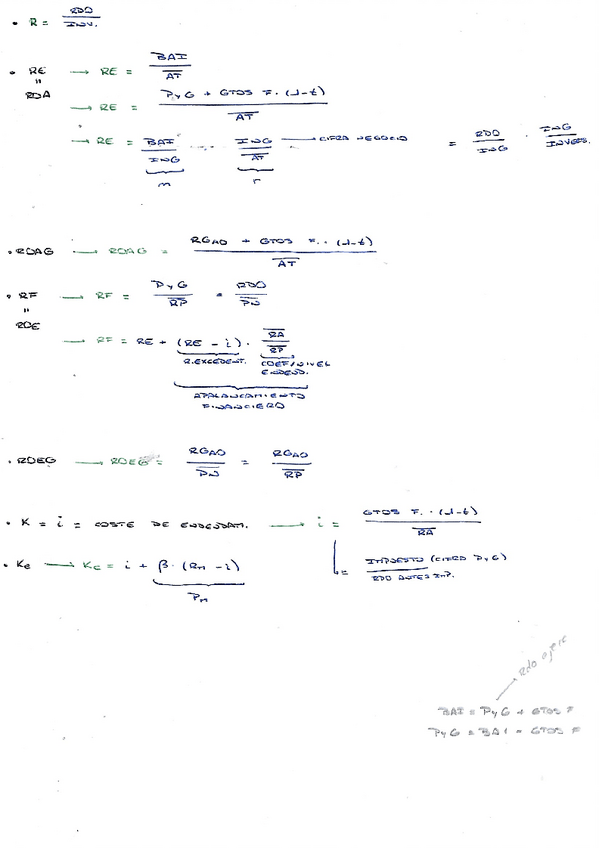 • R = RDO / INV.
• RE → RE = BAI / AT
" RDA
→ RE = PyG + GTOS F. (1-t) / AT
→ RE = BAI / ING ... ING / AT → CIFRA NEGOCIO = RDO / ING · ING / INVERS.
m r
• RDAG → RDAG = RGAO + GTOS F. · (1-t) / AT
• RF → RF = PyG / RP = RDO / PN
" RDE
→ RF = RE + (RE - i) · RA / RP
R. EXCEDENT. COEF/NIVEL ENDEUD.
APALANCAMIENTO FINANCIERO
• RDEG → RDEG = RGAO / PN = RGAO / RP
• K = i = COSTE DE ENDEUDAM. → i = GTOS F. · (1-t) / RA
= IMPUESTO (CIFRA PyG) / RDO ANTES IMP.
• Ke → Ke = i + β · (Rm - i)
PM
Rdo ejerc
BAI = PyG + GTOS F
PyG = BAI - GTOS F